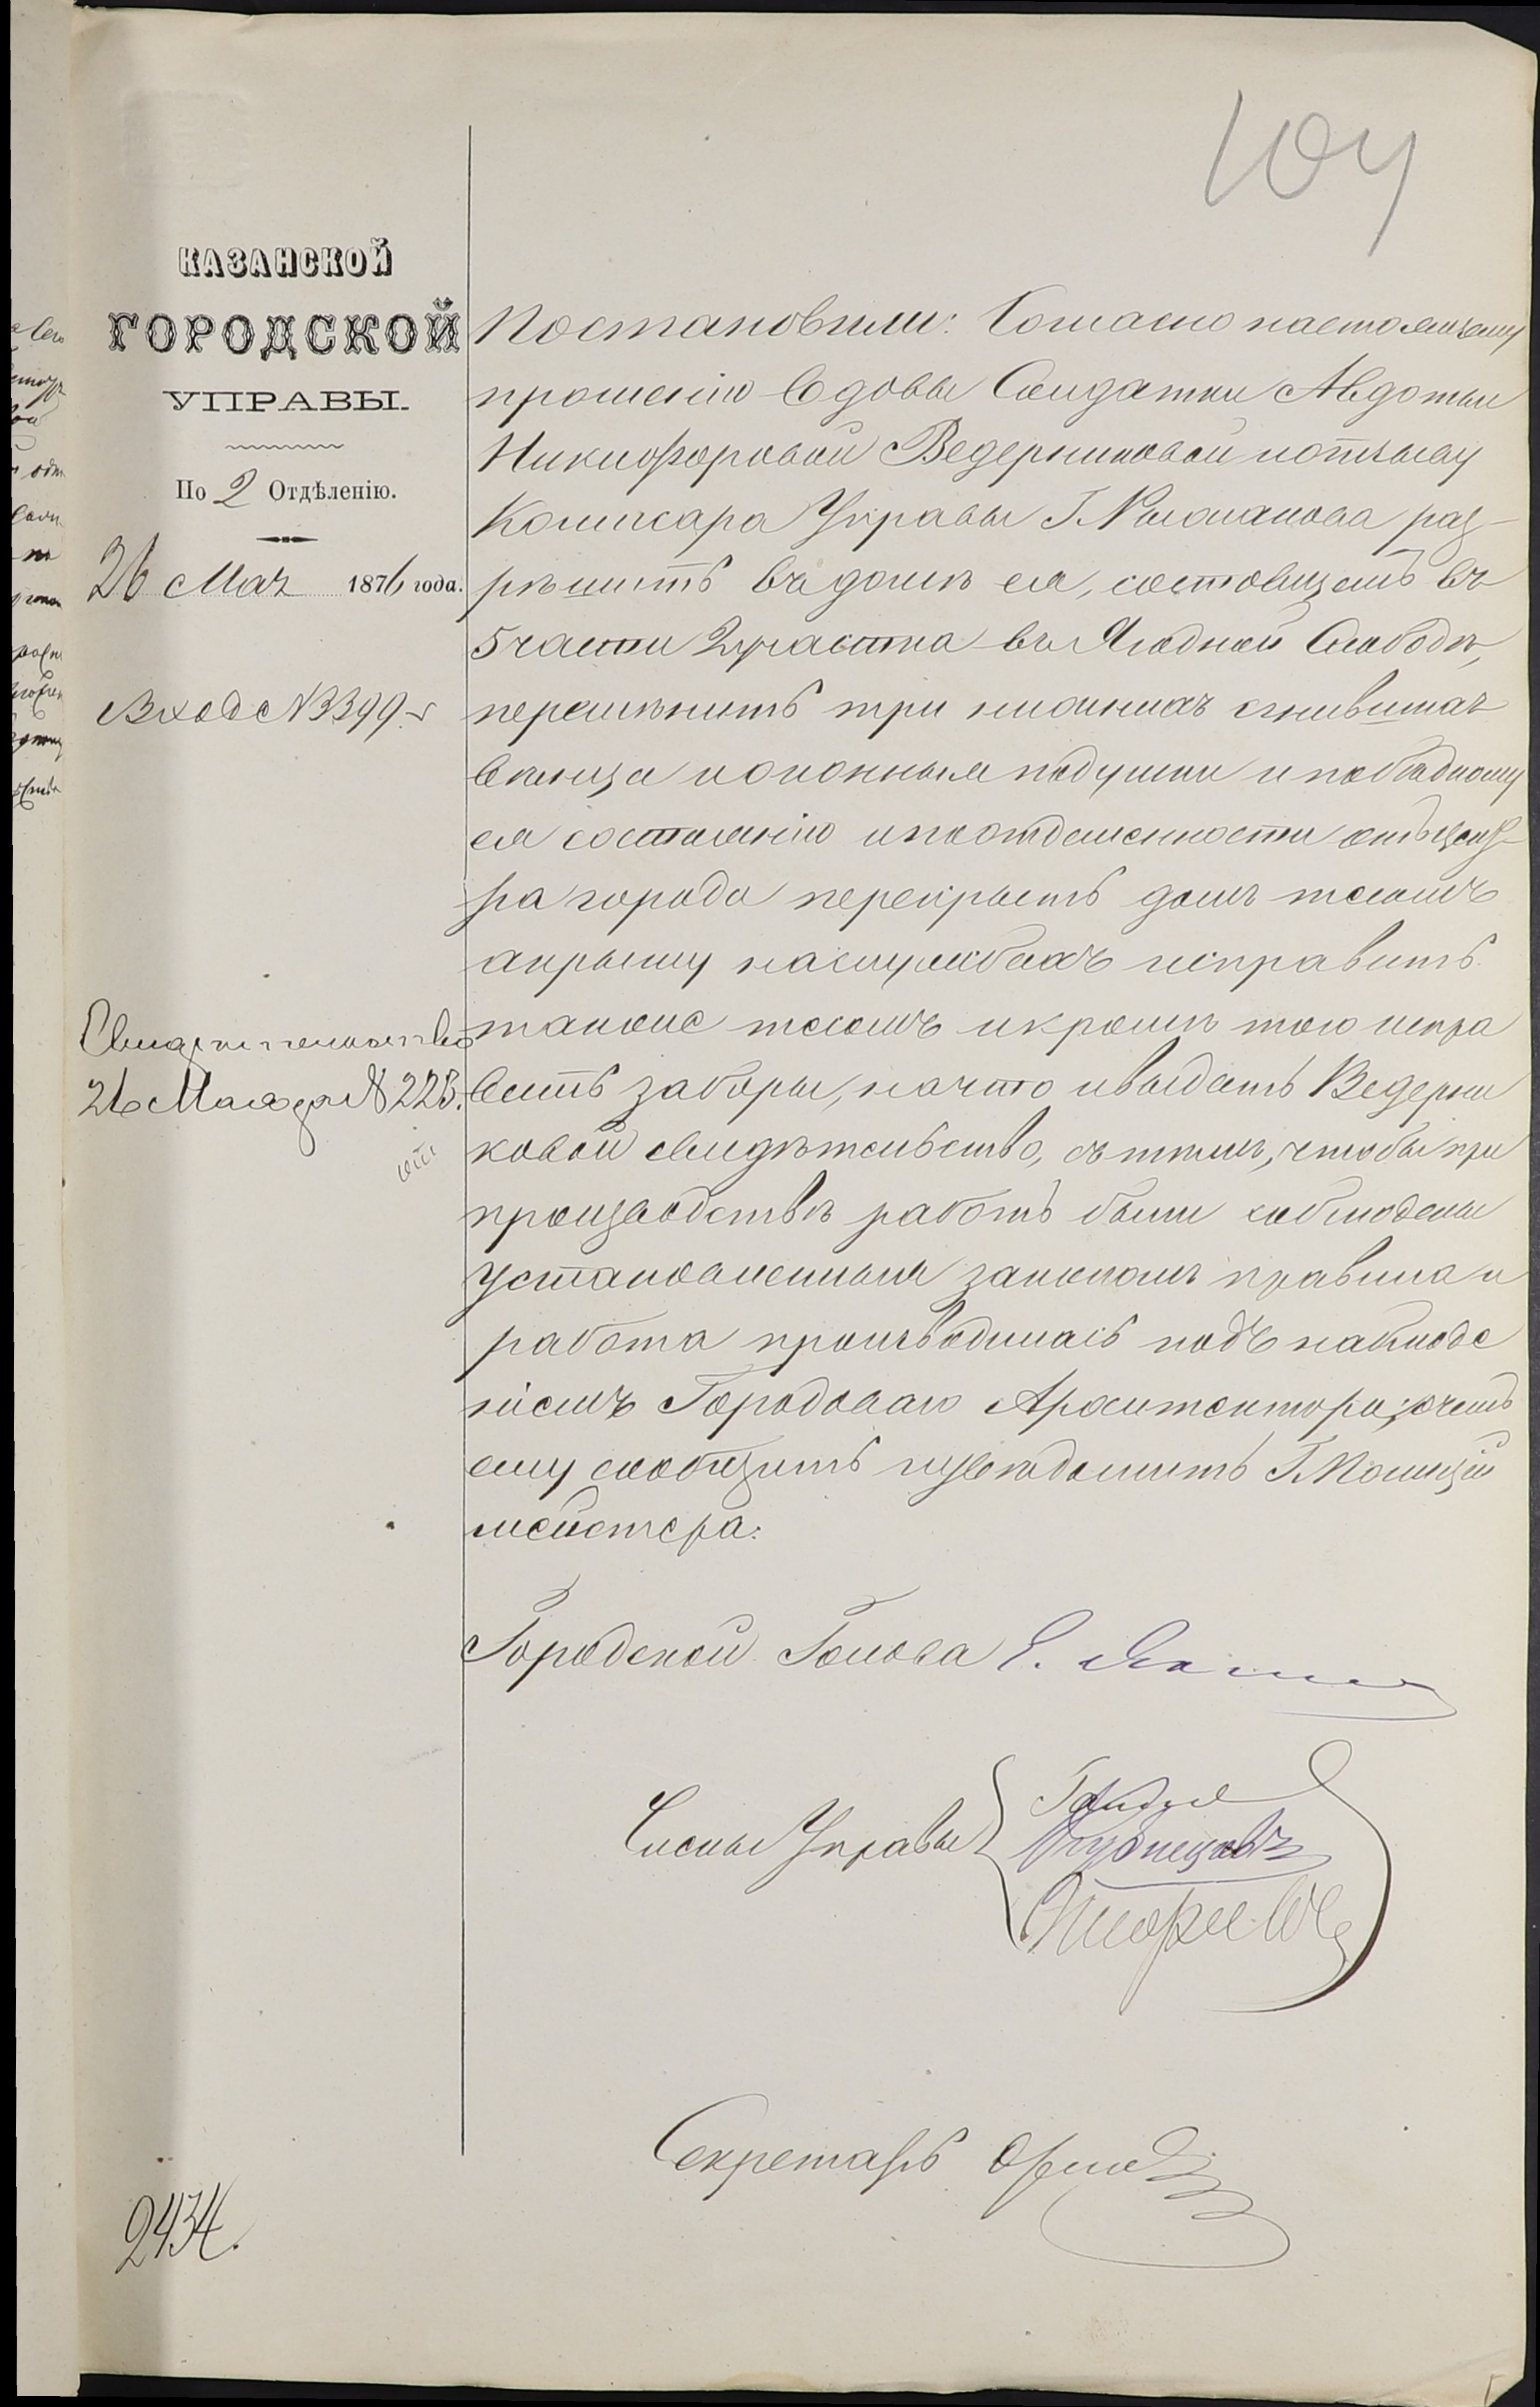 104
КАЗАНСКОЙ
ГОРОДСКОЙ
УПРАВЫ.
По 2 Отдѣленію.
26 Мая 1876 года.
Вход №3399
Свидѣтельство
26 Мая за №223.
Постановили: Согласно настоящему
прошенію вдовы Солдатки Авдотьи
Никифоровой Ведерниковой и отзыву
Комисара Управы Г. раз-
рѣшить въ домѣ ея, состоящемъ въ
5 части 2 участка въ Ягодной Слободѣ,
перемѣнить три нижнихъ сгнившихъ
венца и оконныя подушки и по бѣдному
ея состоянію и по отдаленности отъ цент-
ра города перекрыть домъ тесомъ
а крышу на службахъ исправить
также тесомъ и кромѣ того испра
вить заборы, на что и выдать Ведерни
ковой свидѣтельство, съ тѣмъ, чтобы при
производствѣ работъ были соблюдены
установленныя закономъ правила и
работа производилась подъ наблюде
ніемъ Городоваго Архитектора; о чемъ
ему сообщить и увѣдомить Г. Полицій
мейстера.
Городской Голова Е.
Члены Управы
Кузнецовъ
Секретарь
2434.